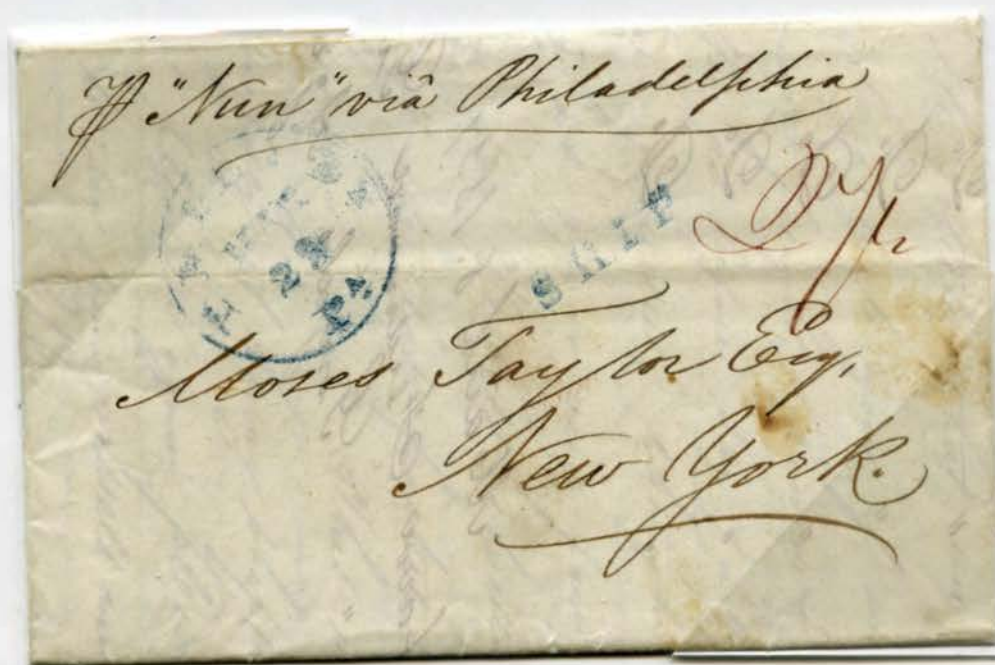 ℔ "Nun" viâ Philadelphia
SHIP
28
Pa
Moses Taylor Esq,
New York.